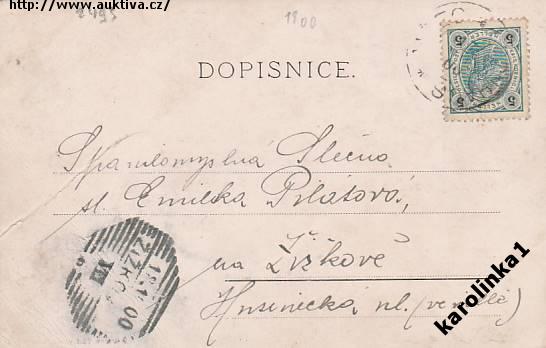 http://www.auktiva.cz/
1900
DOPISNICE.
Spanilomyslná Slečna
sl. Emilka Pilátová,
na Žižkově
Husinecká ul.
ŽIŽKOV
VII
00
5 5
5 5
karolinka1